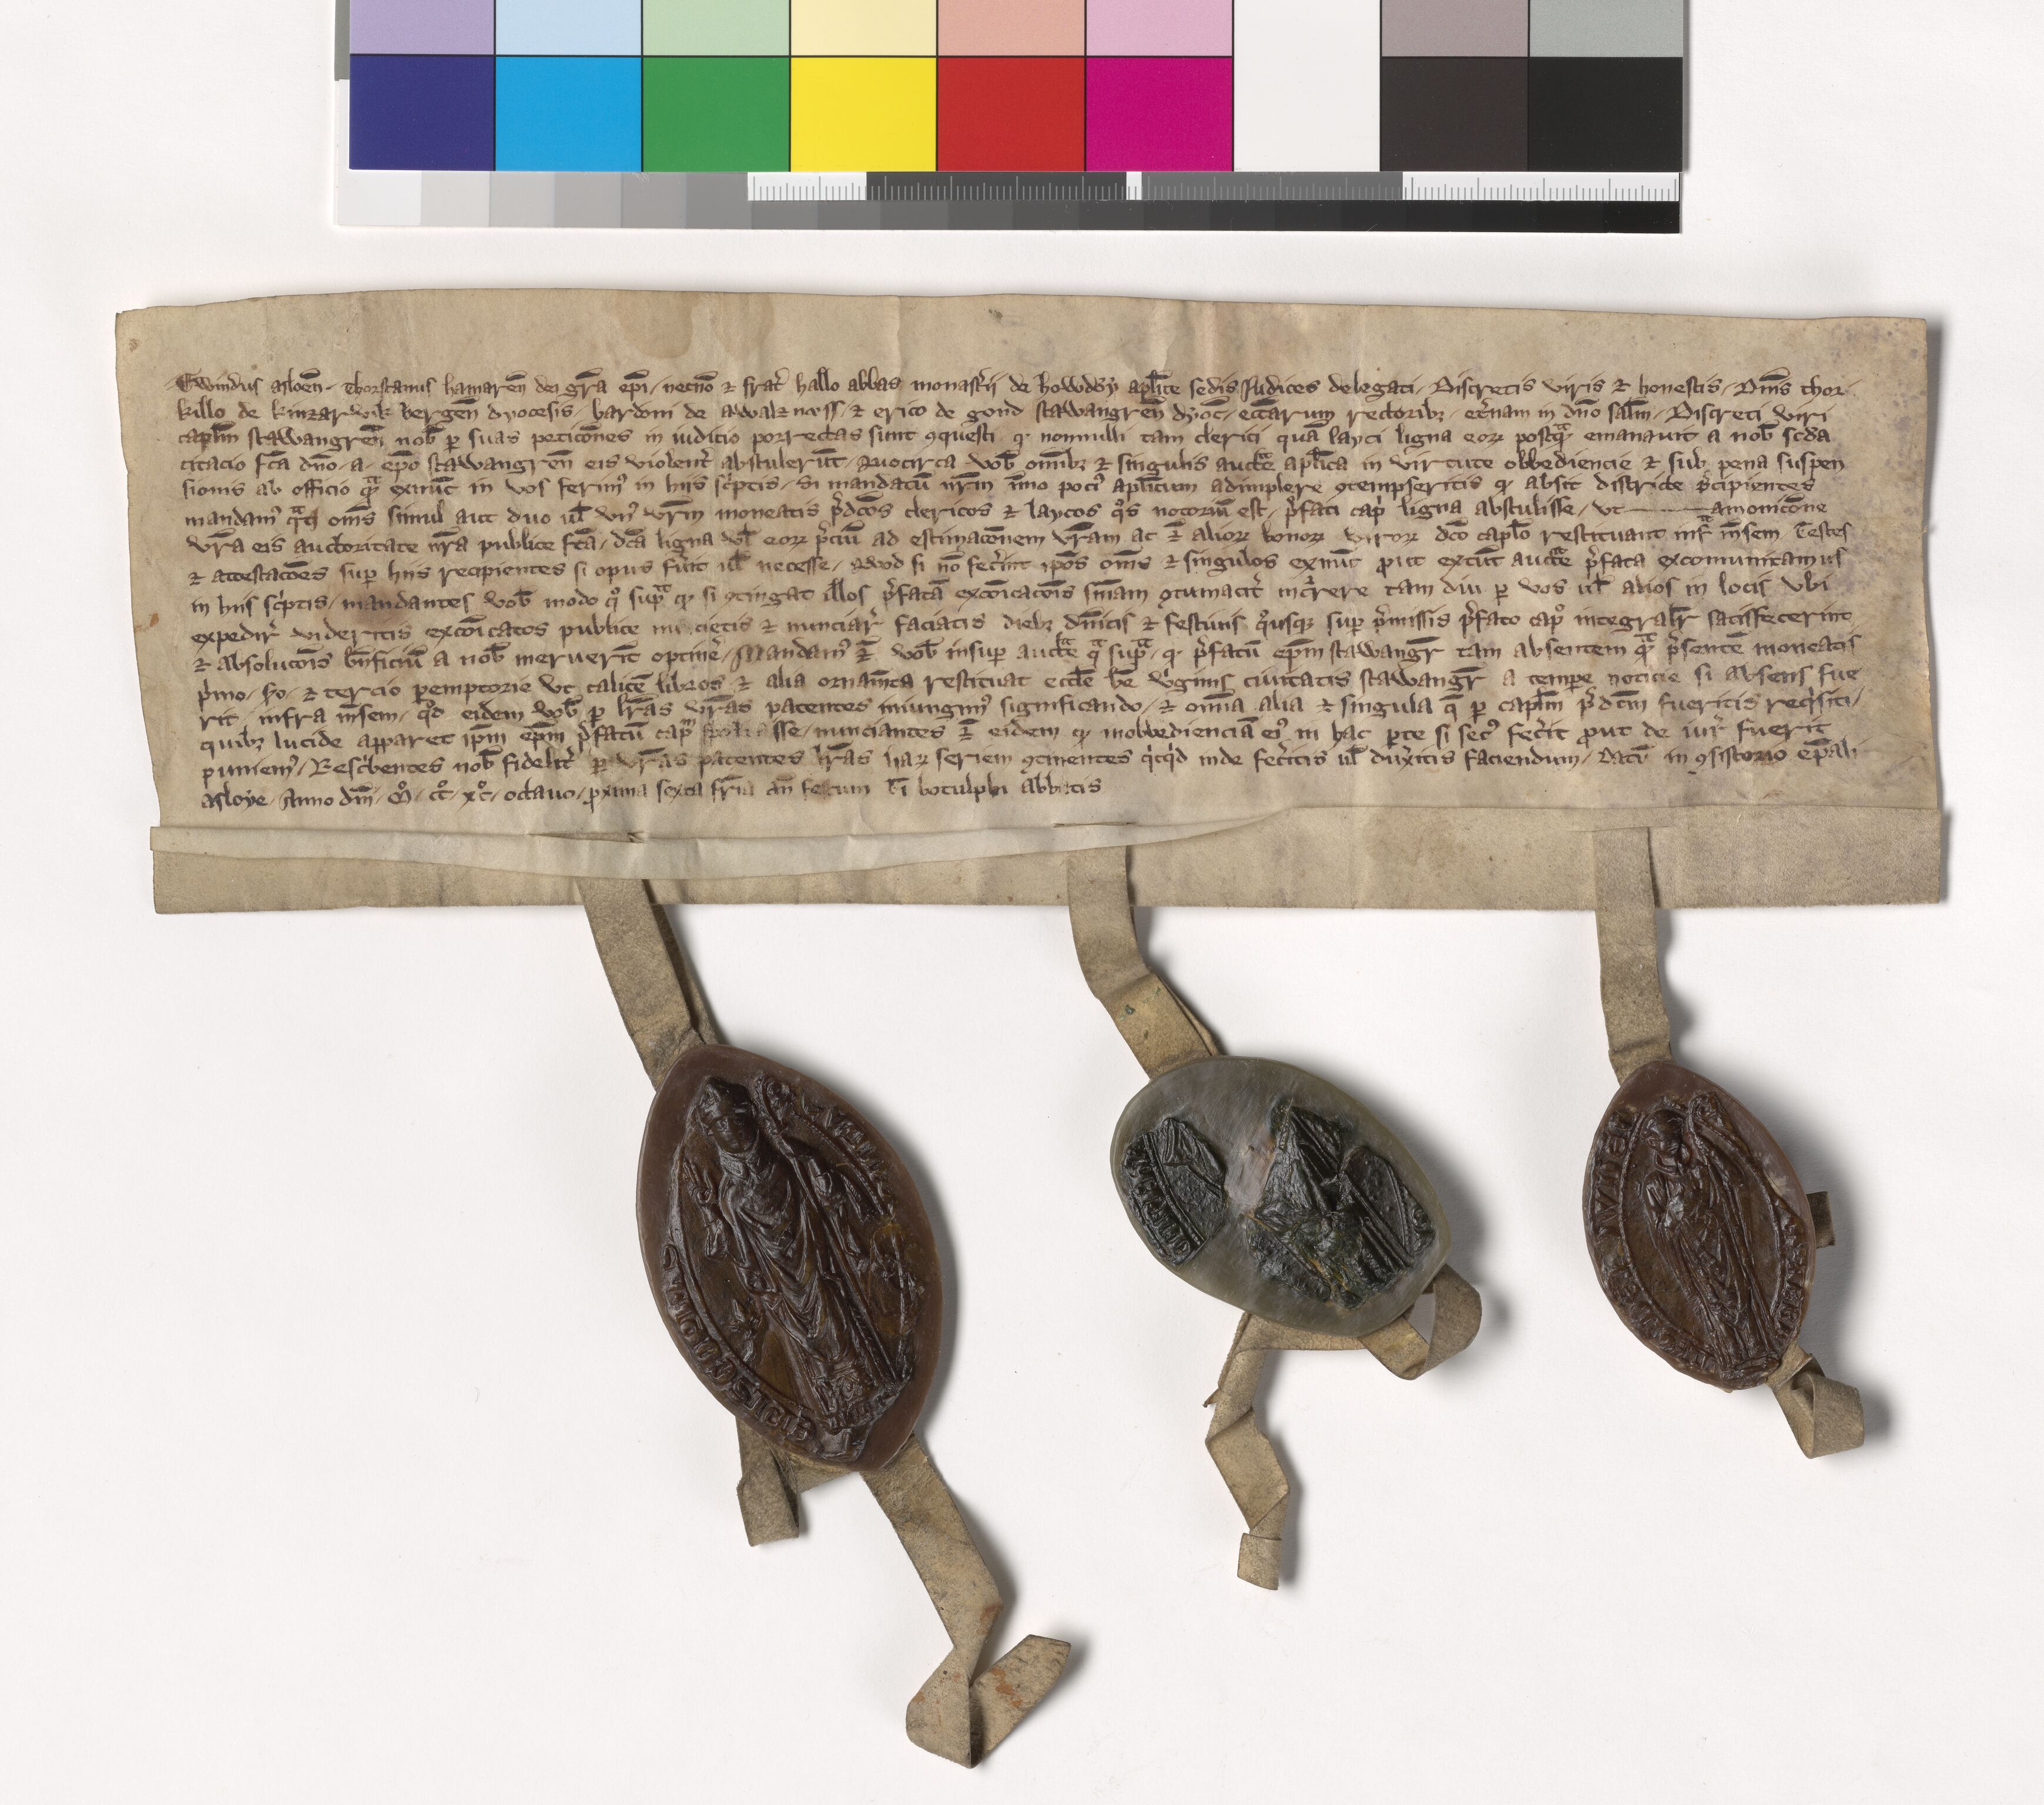 Ewindus asloeñ. Thorstanus hamareñ dei gr̄a ep̄i / necnō ⁊ frat̓ hallo abbas monast̓ii de howdøy apl̄ice sedis Judices delegati / Discretis viris ⁊ honestis / Dn̄is thor
killo de kinzarwik bergeñ dyocesis / bardoni de awalznæss / ⁊ erico de gond stawangreñ dyoc̄ / ecc̄arum rectoribꝫ / et̓nam in dn̄o salt̄m / Discreti viri
capl̄m stawangreñ nob̄ ꝑ suas peticōnes in iuditio porrectas sunt ꝯquesti ꝙ nonnulli tam clerici quā layci ligna eoꝝ postqᵃꝫ emanauit a nob̄ sc̄da
citacio fc̄a dn̄o / a / ep̄o stawangreñ eis violent̓ abstulerūt / Quocirca vob̄ om̄ibꝫ ⁊ singulis auctᵗᵉ apl̄ica in virtute obbediencie ⁊ sub pena suspen
sionis ab officio qᵃꝫ exnūc in vos ferimꝰ in hiis sc̓ptis / Si mandatū nr̄m īmo pocꝰ apl̄icum adimplere ꝯtempseritis ꝙ absit districte p̓cipientes
mandamꝰ qᵃtꝫ om̄s simul aut duo ul̄ vnꝰ vr̄m moneatis p̓dc̄os clericos ⁊ laycos qᵒs notoriū est / p̓fati cap̓ ligna abstulisse / vt amonicōne
vr̄a eis auctoritate nr̄a publice fc̄a / dc̄a ligna vl̄ eoꝝ p̓ciū ad estimacōnem vr̄am ac ⁊̄ alioꝝ bonoꝝ viroꝝ dc̄o capl̄o restituant infᵃ m̄sem Testes
⁊ attestacōes suꝑ hiis recipientes si opus fu̓it ul̄ necesse / Quod si nō fec̓int ip̄os om̄s ⁊ singulos exnūc put extūc auctᵗᵉ p̓fata excomunicamus
in hiis sc̓ptis / mandantes vob̄ modo qᵒ supᵃ ꝙ si ꝯtingat illos p̓fatā excōicacōis sn̄iam ꝯtumacit̓ incʳrere tam diu ꝑ vos ul̄ alios in locis vbi
expedir̓ videritis excōicatos publice nuncietis ⁊ nunciar̓ faciatis diebꝫ dn̄icis ⁊ festiuis qᵒusqꝫ suꝑ p̓missis p̓fato cap̓o integralr̄ satisfecerint
⁊ absolucōis bn̄ficiū a nob̄ meruerīt optiner̓ / Mandamꝰ ⁊̄ vob̄ insuꝑ auctᵗᵉ qᵃ supᵃ / ꝙ p̓fatū ep̄m stawangr̄ tam absentem qᵃꝫ p̓sentē moneatis
p̓mo / so / ⁊ tercio ꝑemptorie vt calicē libros ⁊ alia ornam̄ta restituat eccl̄e bē v̓ginis ciuitatis stawangr̄ a temꝑe noticie si absens fue
rit / infra m̄sem / qᵒd eidem vob̄ ꝑ lr̄as vr̄as patentes iniungimꝰ significando / ⁊ om̄ia alia ⁊ singula q̄ ꝑ capl̄m p̓dc̄m fueritis req̓siti /
quibꝫ lucide apparet ip̄m ep̄m p̓fatū capᵐ spoliasse / nunciantes ⁊̄ eidem ꝙ inobbedienciā eiꝰ in hac ꝑte si secꝰ fec̓it ꝓut de iur̓ fuerit
puniemꝰ / Resc̓bentes nob̄ fidelit̓ ꝑ vr̄as patentes lr̄as haꝝ seriem ꝯtinentes q̓cq̓d inde fec̓itis ul̄ dux̓itis faciendum / Dat̄ in ꝯsistorio ep̄ali
asloye / Anno dn̄i / mͦ / ccͦ / xcͦ / octauo / ꝓxima sexta fr̄ia an̄ festum bī botulphi abbatis